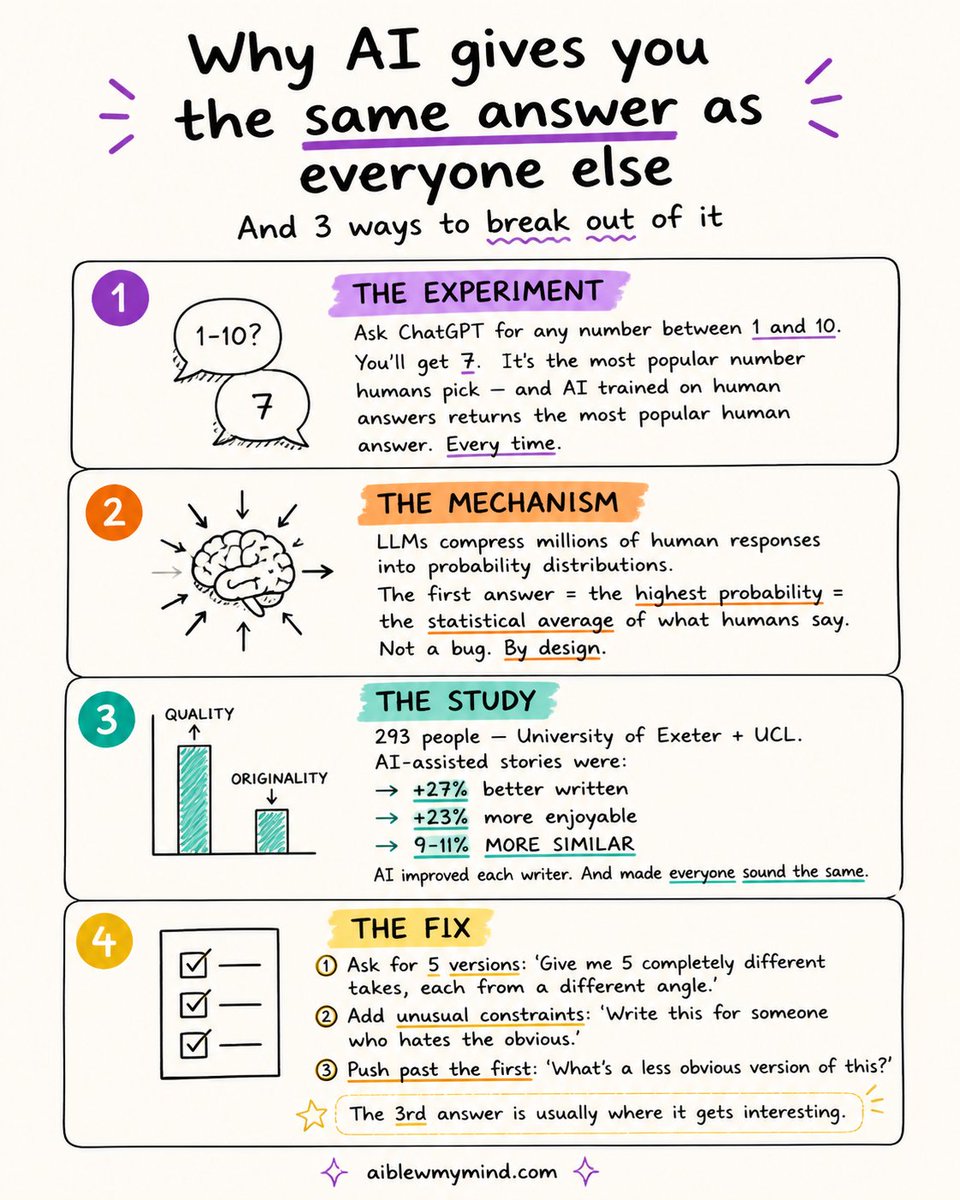 Why AI gives you
the same answer as
everyone else
And 3 ways to break out of it
1
1-10?
7
THE EXPERIMENT
Ask ChatGPT for any number between 1 and 10.
You'll get 7. It's the most popular number
humans pick — and AI trained on human
answers returns the most popular human
answer. Every time.
2
THE MECHANISM
LLMs compress millions of human responses
into probability distributions.
The first answer = the highest probability =
the statistical average of what humans say.
Not a bug. By design.
3
QUALITY
ORIGINALITY
THE STUDY
293 people — University of Exeter + UCL.
AI-assisted stories were:
→ +27% better written
→ +23% more enjoyable
→ 9-11% MORE SIMILAR
AI improved each writer. And made everyone sound the same.
4
THE FIX
① Ask for 5 versions: 'Give me 5 completely different
takes, each from a different angle.'
② Add unusual constraints: 'Write this for someone
who hates the obvious.'
③ Push past the first: 'What's a less obvious version of this?'
The 3rd answer is usually where it gets interesting.
aiblewmymind.com